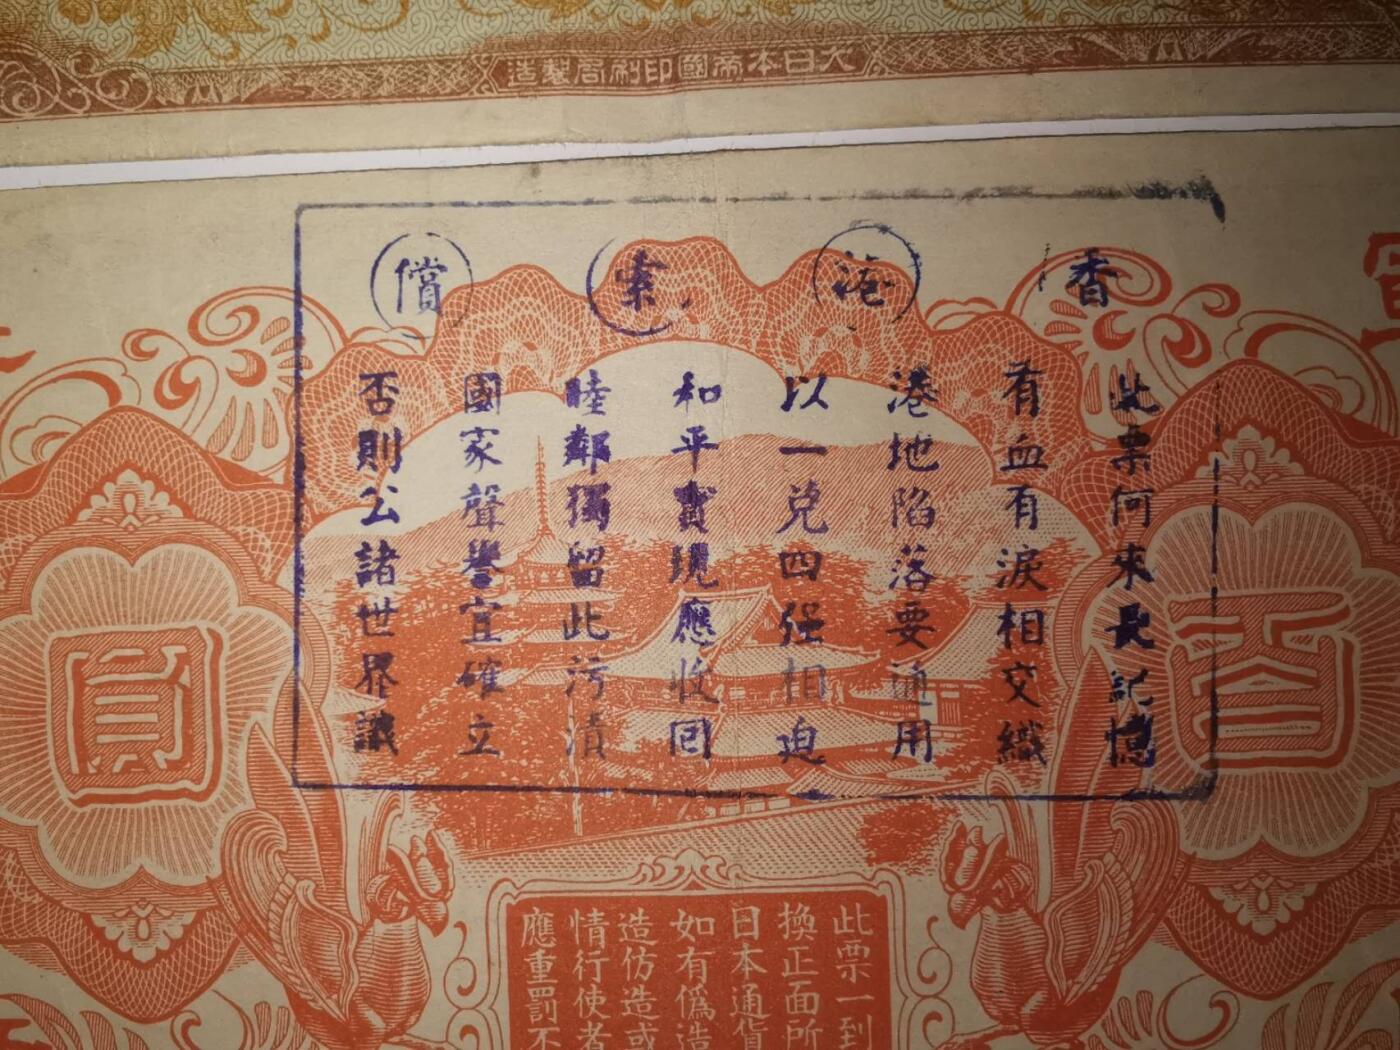 大日本帝國印刷局製造
香港索償
此票何來長記憶
有血有淚相交織
港地陷落要通用
以一兑四强相迫
和平實現應收回
睦鄰獨留此污漬
國家聲譽宜確立
否則公諸世界識
百
圓
此票一到
換正面所
日本通貨
如有僞造
造仿造或
情行使者
應重罰不